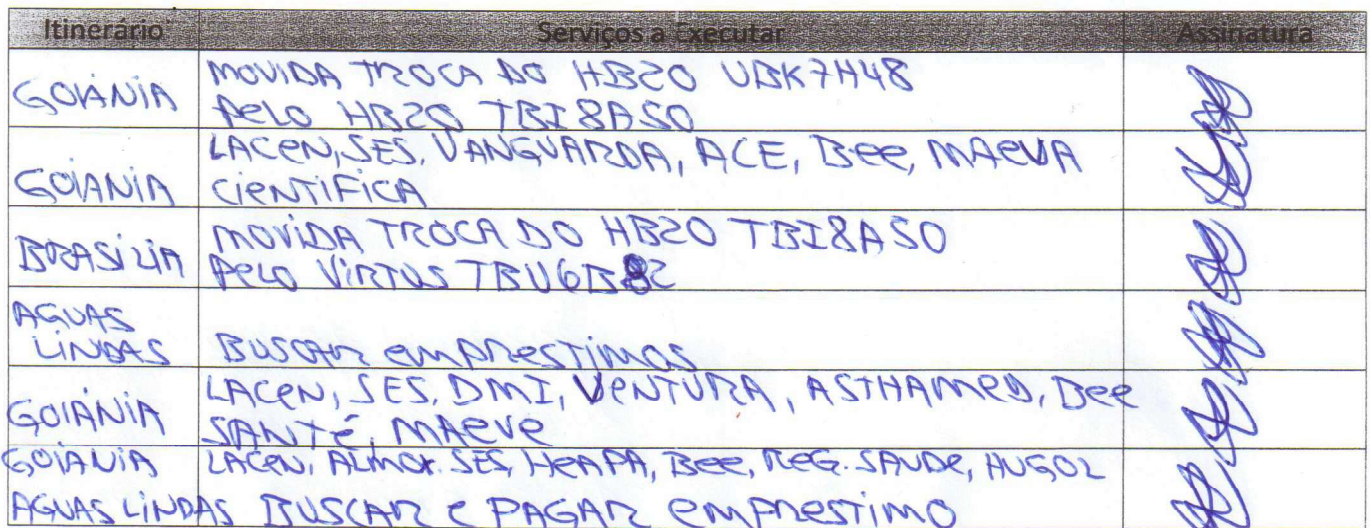 Itinerário Serviços a Executar Assinatura
GOIÂNIA MOVIDA TROCA DO HB20 UBK7H48
PELO HB20 TBI8A50
GOIÂNIA LACEN, SES, VANGUARDA, ACE, Bee, MAEVA
CIENTIFICA
BRASILIA MOVIDA TROCA DO HB20 TBI8A50
PELO VIRTUS TBU6B82
AGUAS
LINDAS BUSCAR emprestimos
GOIÂNIA LACEN, SES, DMI, VENTURA, ASTHAMED, Bee
SANTÉ, MAEVE
GOIÂNIA LACEN, ALMOX. SES, HEAPA, Bee, REG. SAUDE, HUGOL
AGUAS LINDAS BUSCAR E PAGAR emprestimo